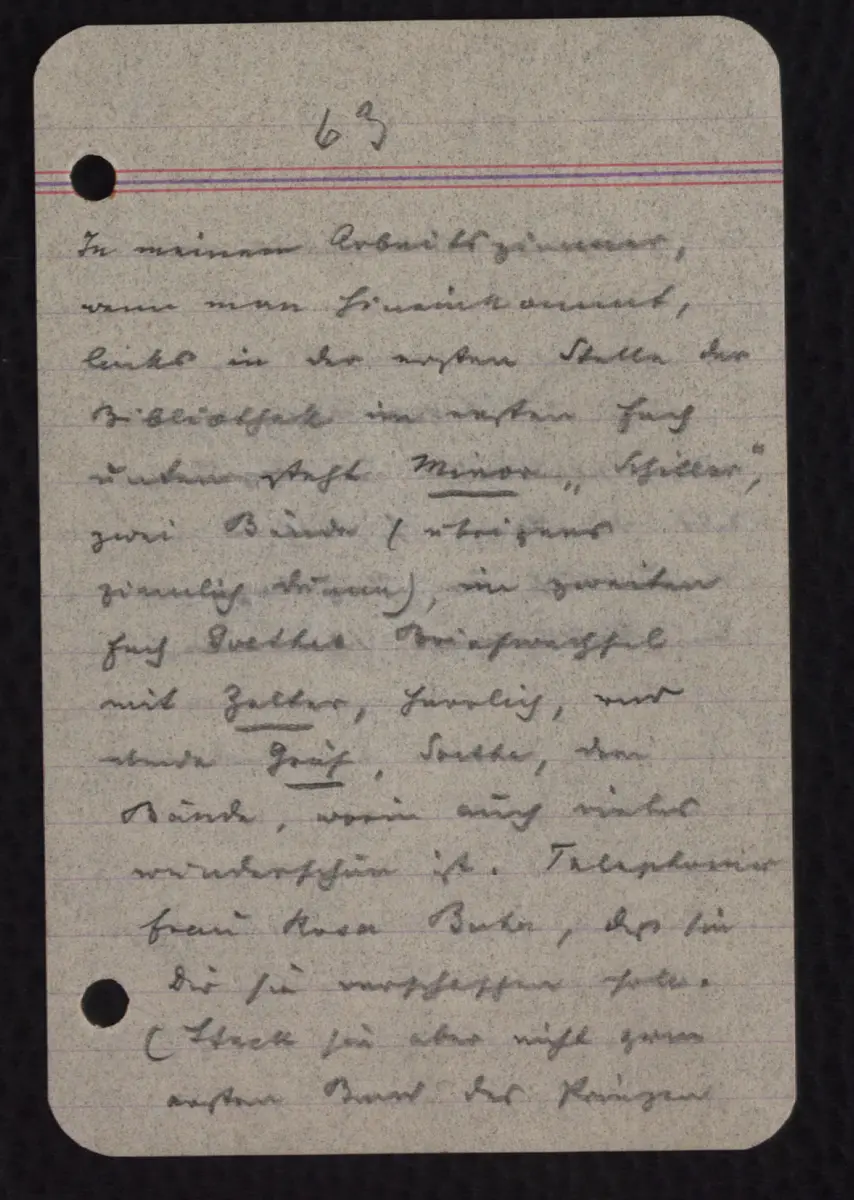 63
In meinem Arbeitszimmer,
wenn man hineinkommt,
links in der ersten Stelle der
Bibliothek im ersten Fach
unten steht Minor „Schiller“,
zwei Bände (übrigens
ziemlich dünn), im zweiten
Fach Goethes Briefwechsel
mit Zelter, herrlich, und
ebenda Gräf, Goethe, drei
Bände, worin auch vieles
wunderschön ist. Telephonier
Frau Rosa, daß sie
Dir sie verschaffen soll.
(Steck sie aber nicht zum
ersten Band des Prinzen